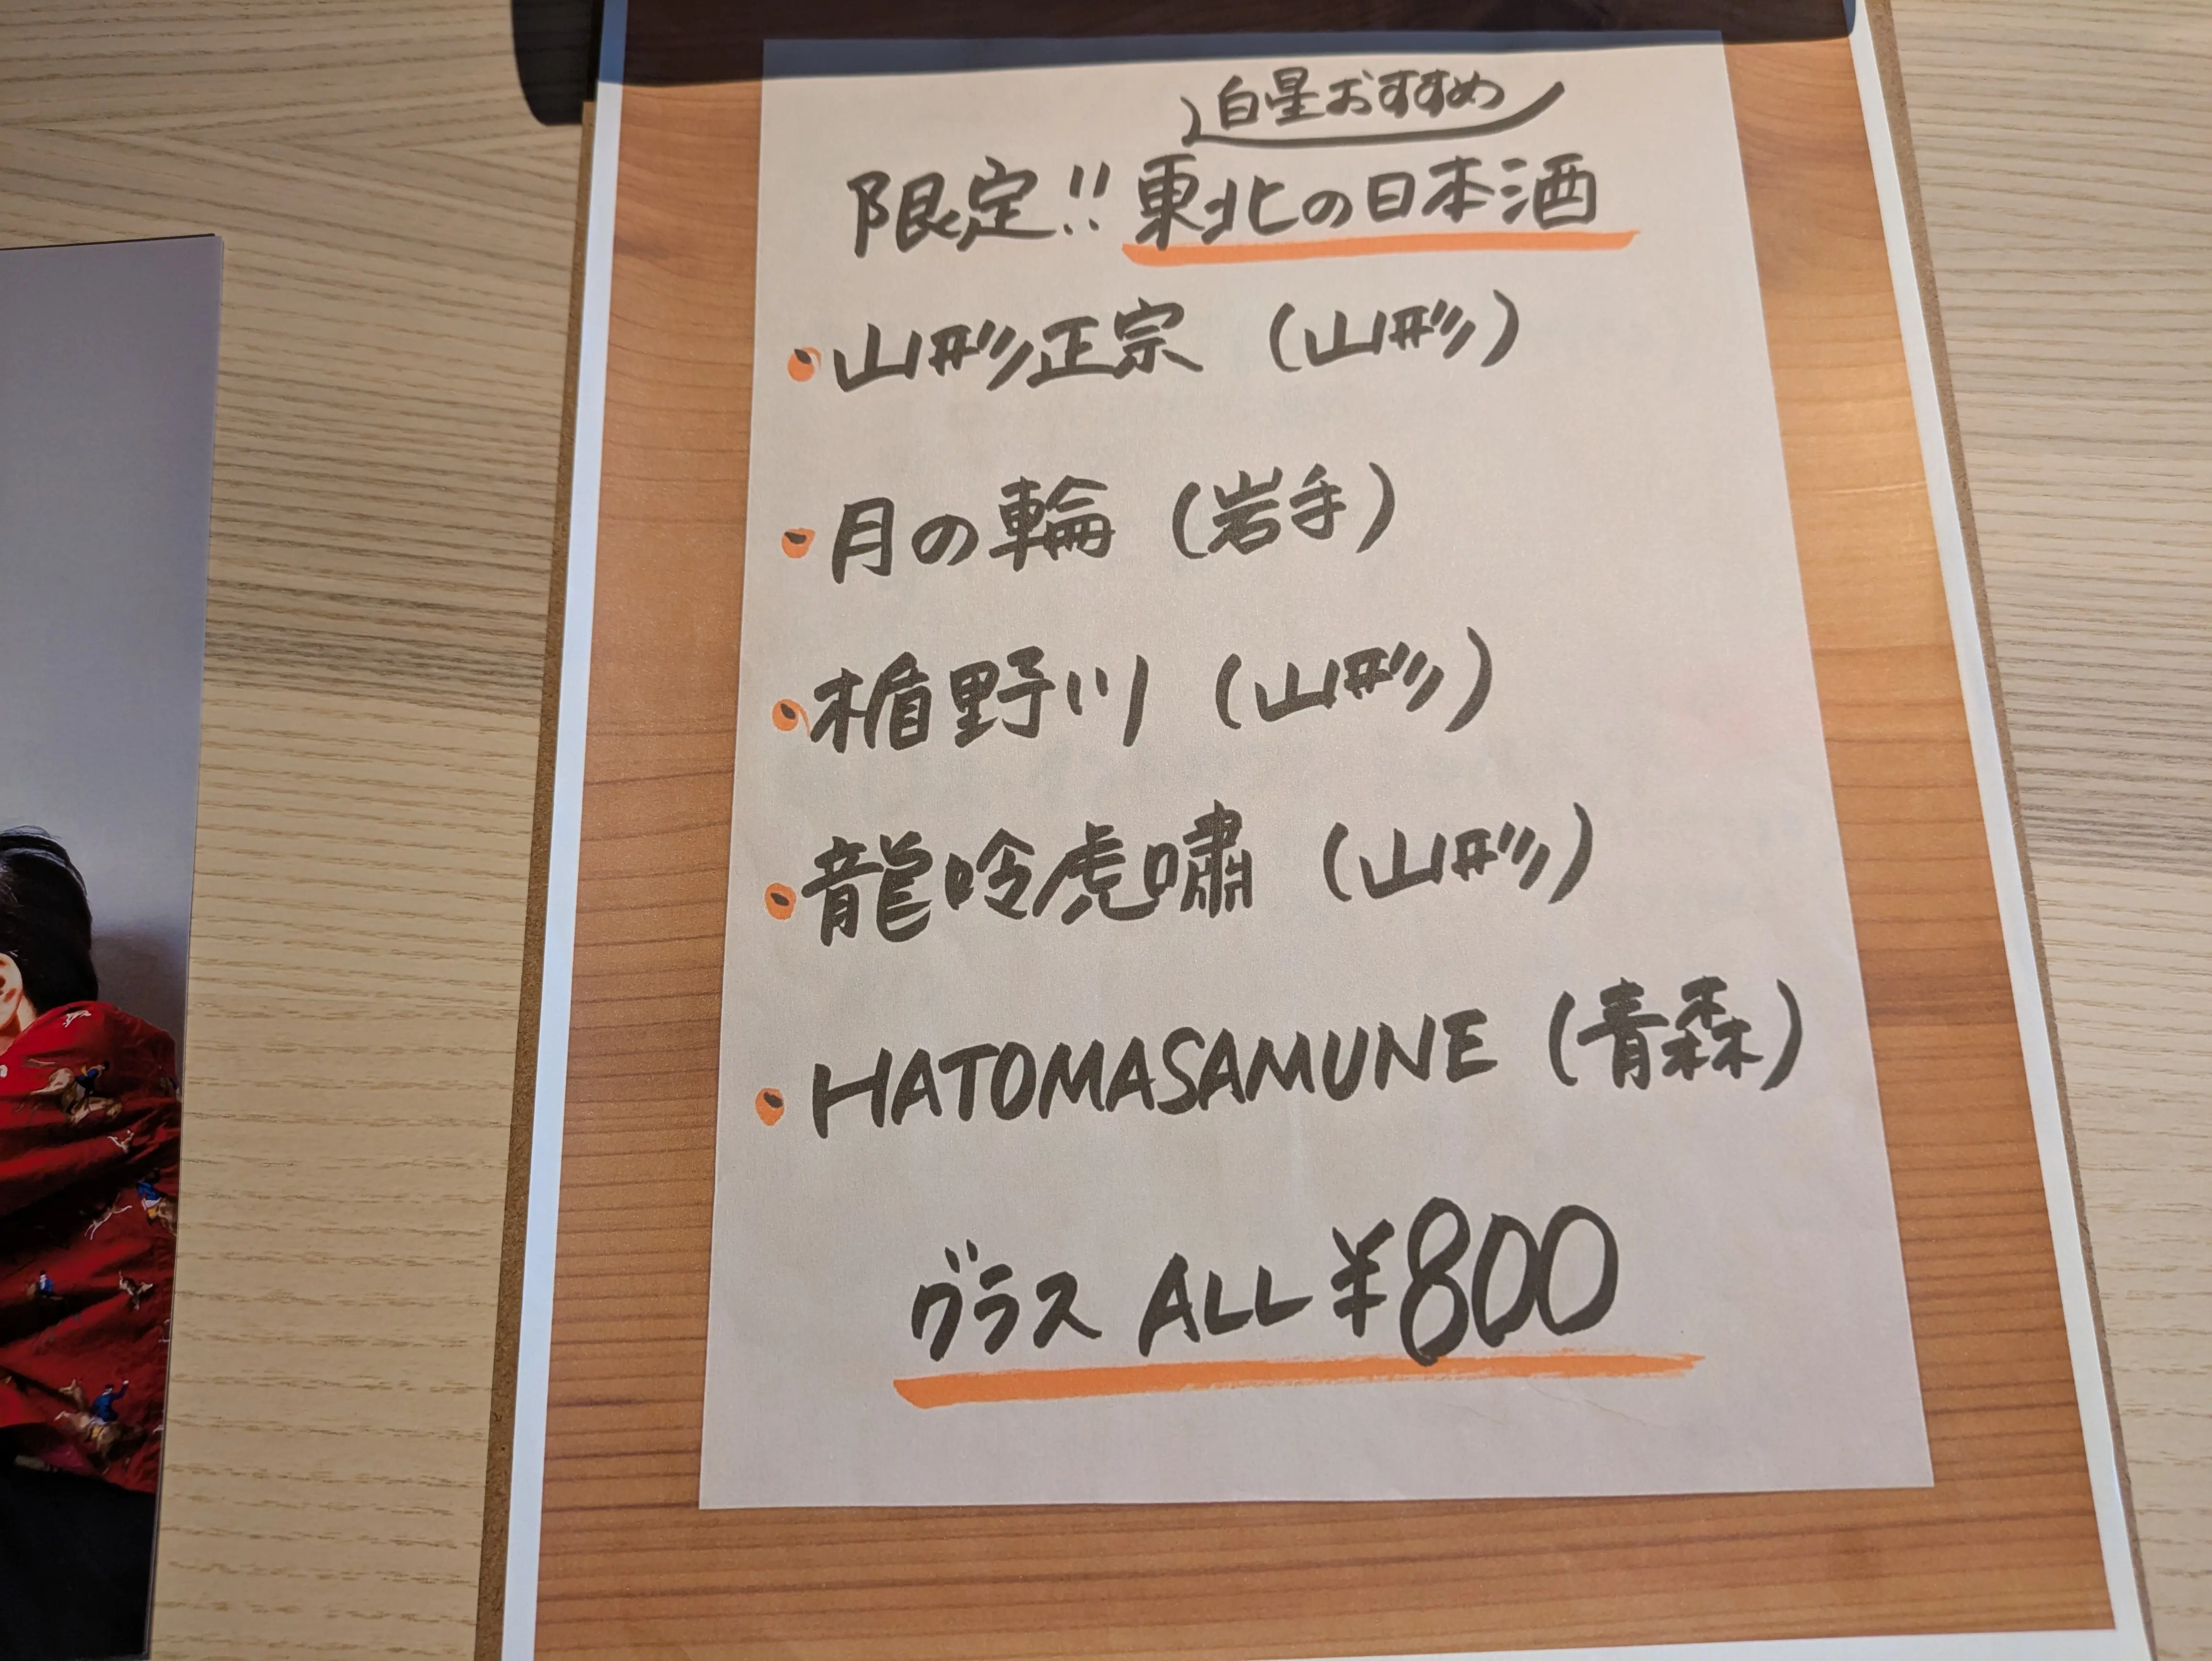 白星おすすめ
限定!! 東北の日本酒
・山形正宗 (山形)
・月の輪 (岩手)
・楯野川 (山形)
・龍吟虎嘯 (山形)
・HATOMASAMUNE (青森)
グラス ALL ¥800